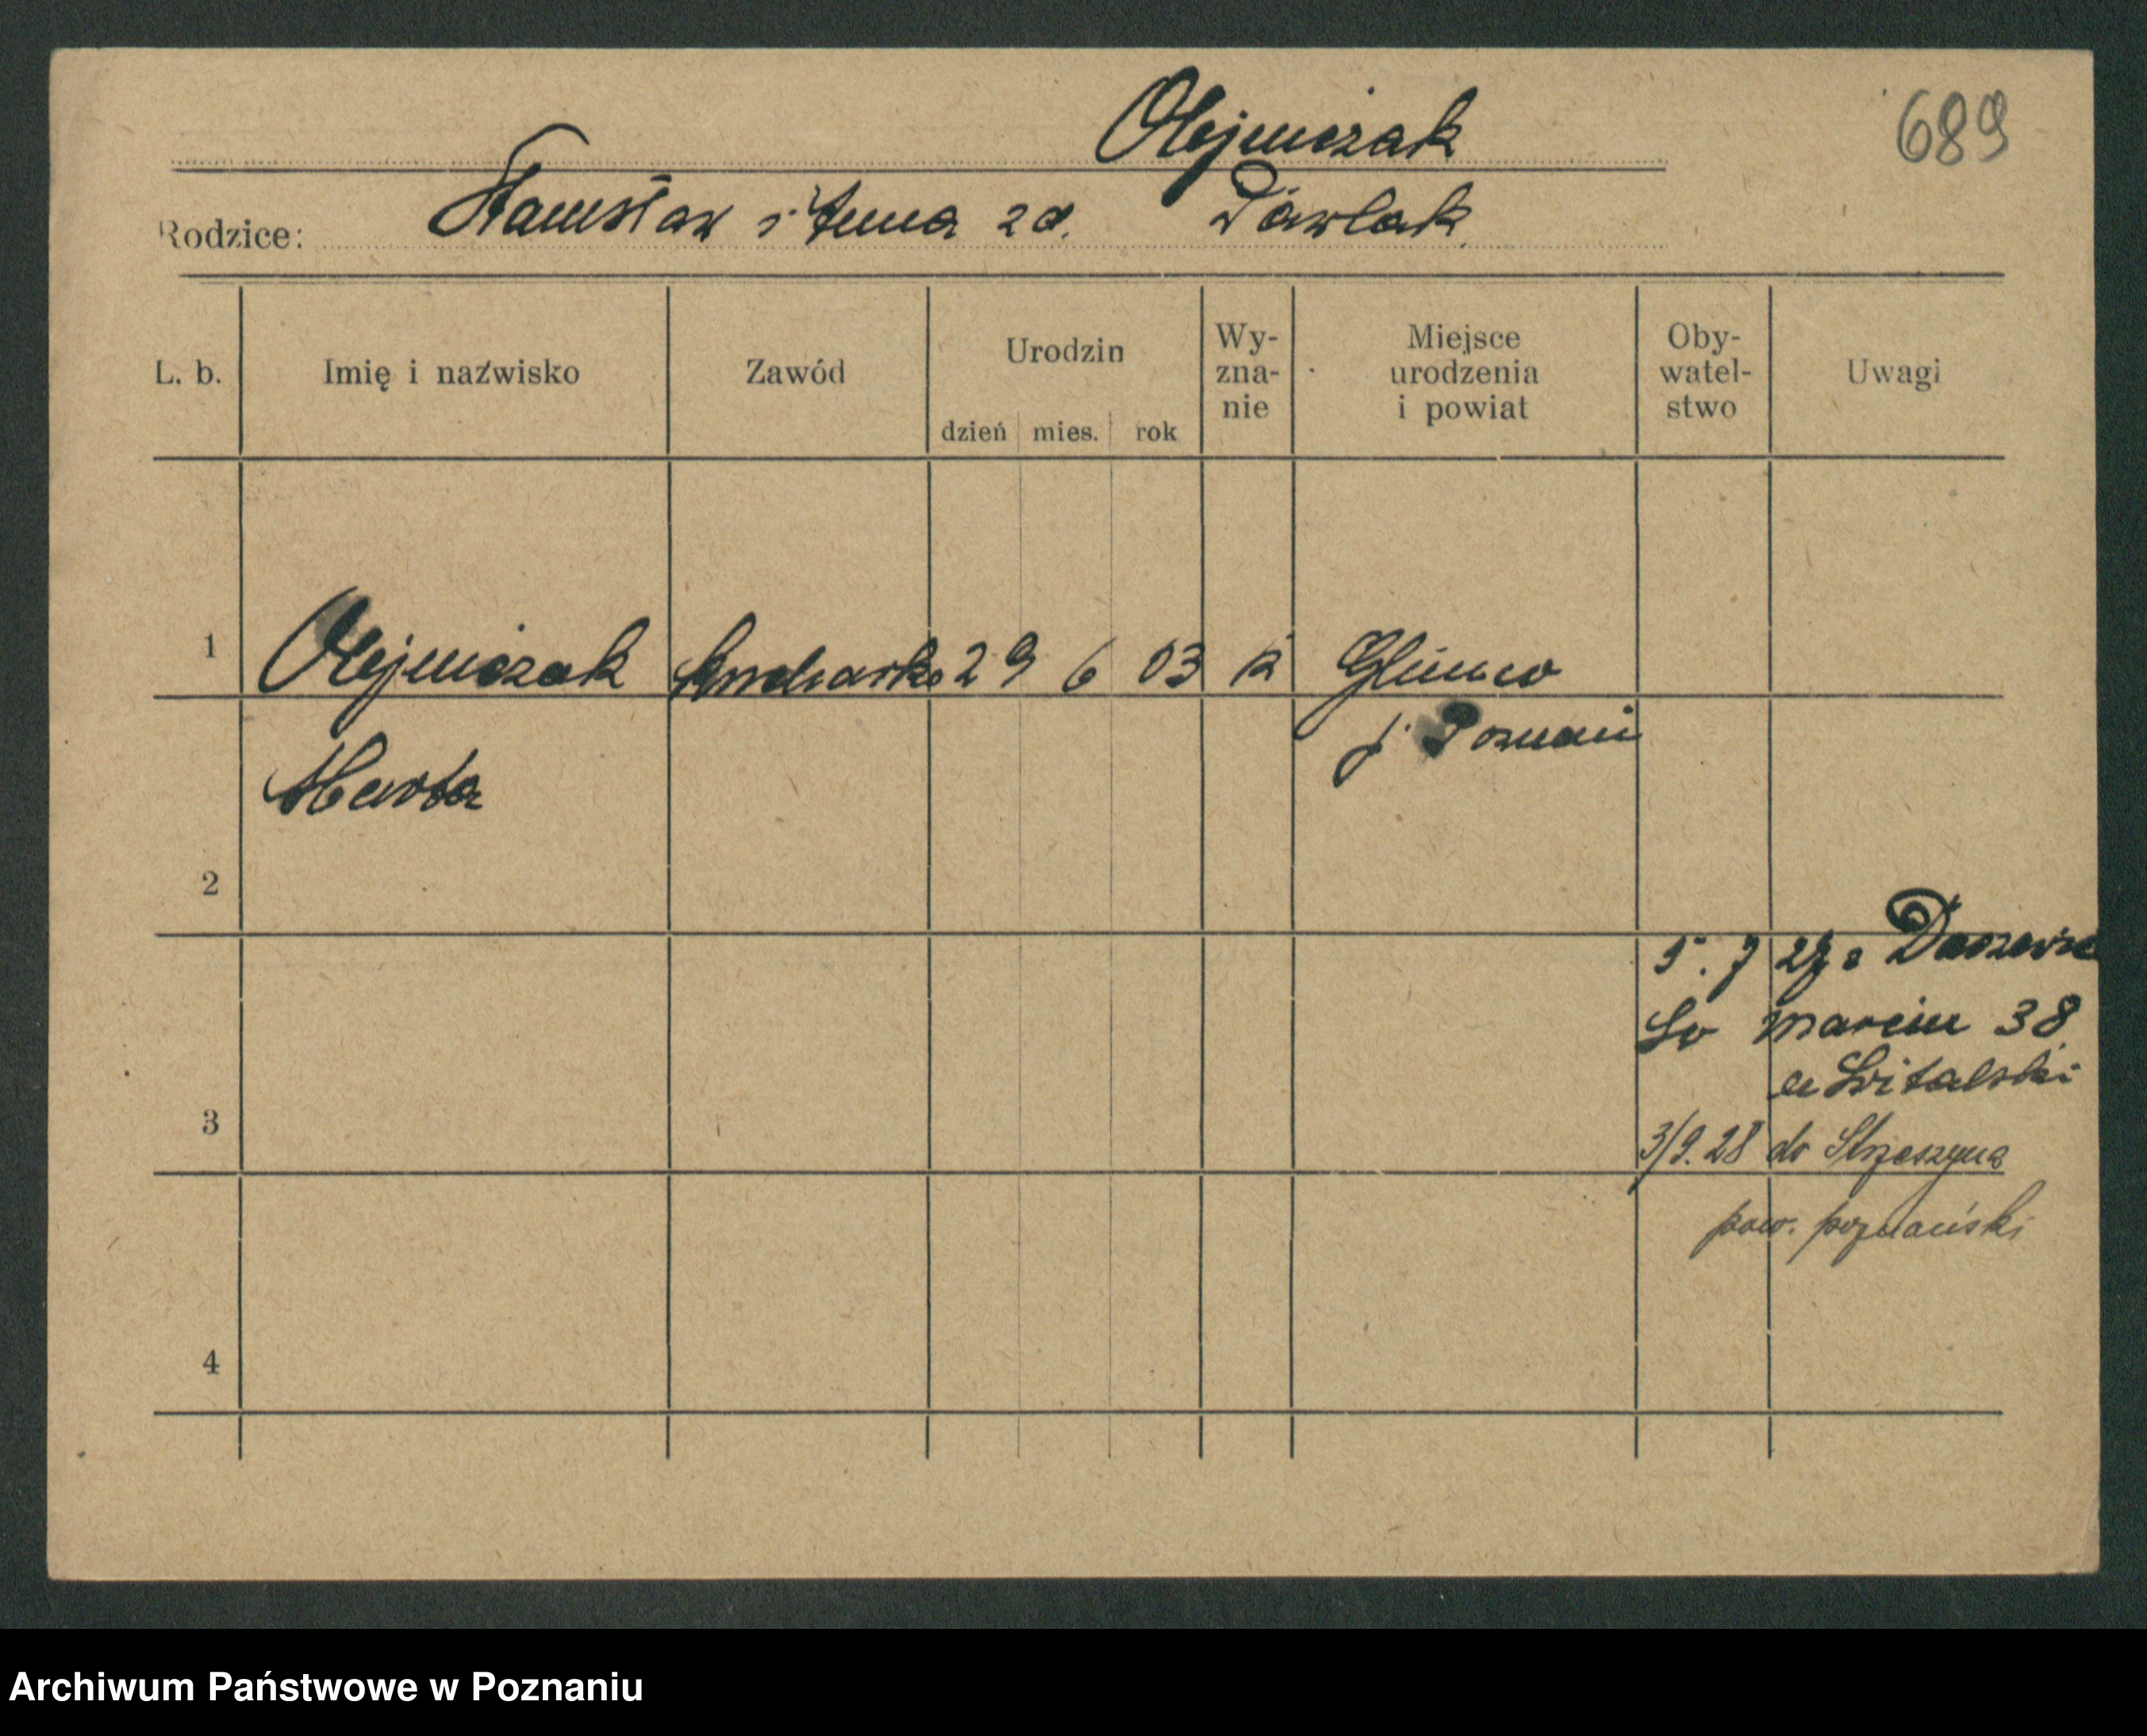 Olejniczak
689
Rodzice: Stanisław i Anna zd. Pawlak
L. b.
Imię i nazwisko
Zawód
Urodzin
dzień mies. rok
Wy-
zna-
nie
Miejsce
urodzenia
i powiat
Oby-
watel-
stwo
Uwagi
1 Olejniczak kucharka 29 6 03 k
p. Poznań
Marta
2
5. 7 27 z
Św Marcin 38
u Świtalski
3/9. 28 do Strzeszyna
3
pow. poznański
4
Archiwum Państwowe w Poznaniu